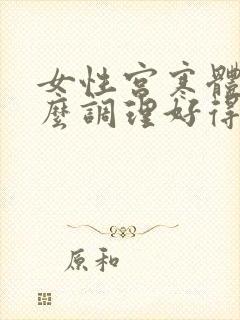 女性宮寒體
麼調理好得
原和